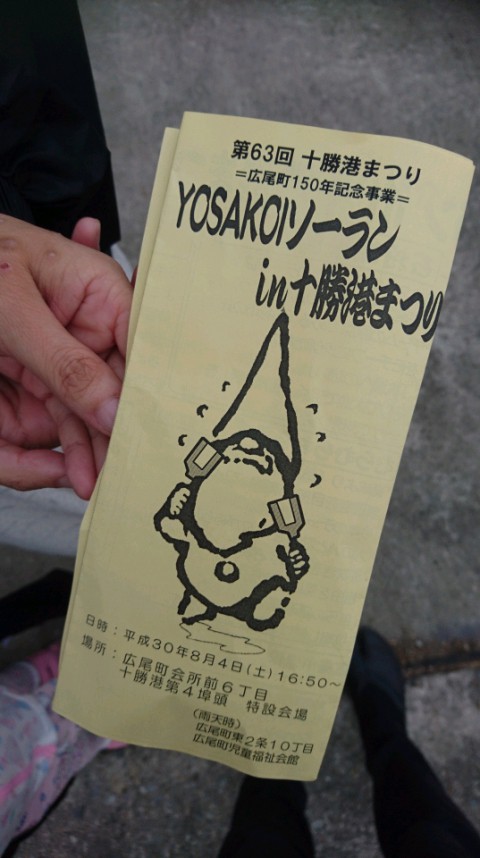 第63回 十勝港まつり
=広尾町150年記念事業=
YOSAKOIソーラン
in十勝港まつり
日時：平成30年8月4日(土)16:50～
場所：広尾町会所前6丁目
十勝港第4埠頭 特設会場
(雨天時)
広尾町東2条10丁目
広尾町児童福祉会館